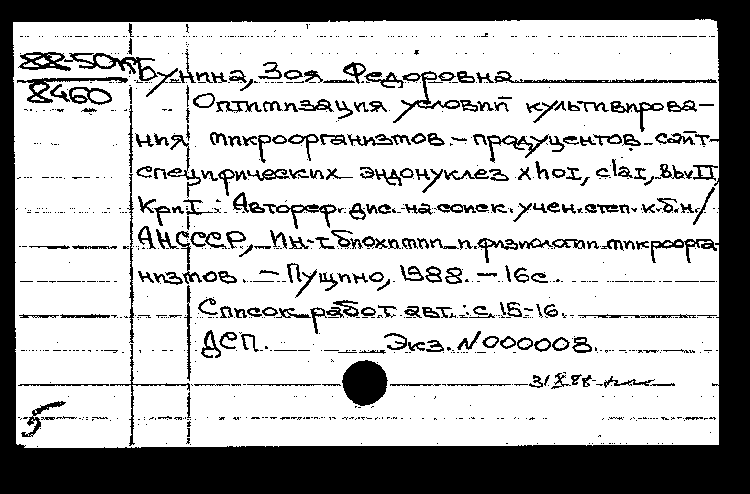 88-50кт Бунина, Зоя Федоровна
8460
Оптимизация условий культивирова-
ния микроорганизмов-продуцентов сайт-
специфических эндонуклез XhoI, claI, BbvII,
KpnI: Автореф. дис. на соиск. учен. степ. к.б.н./
АНСССР, Ин-т биохимии и физиологии микроорга-
низмов. - Пущино, 1988. - 16с.
Список работ авт.: с 15-16.
ДСП. Экз. N000008.
31 X 88
5